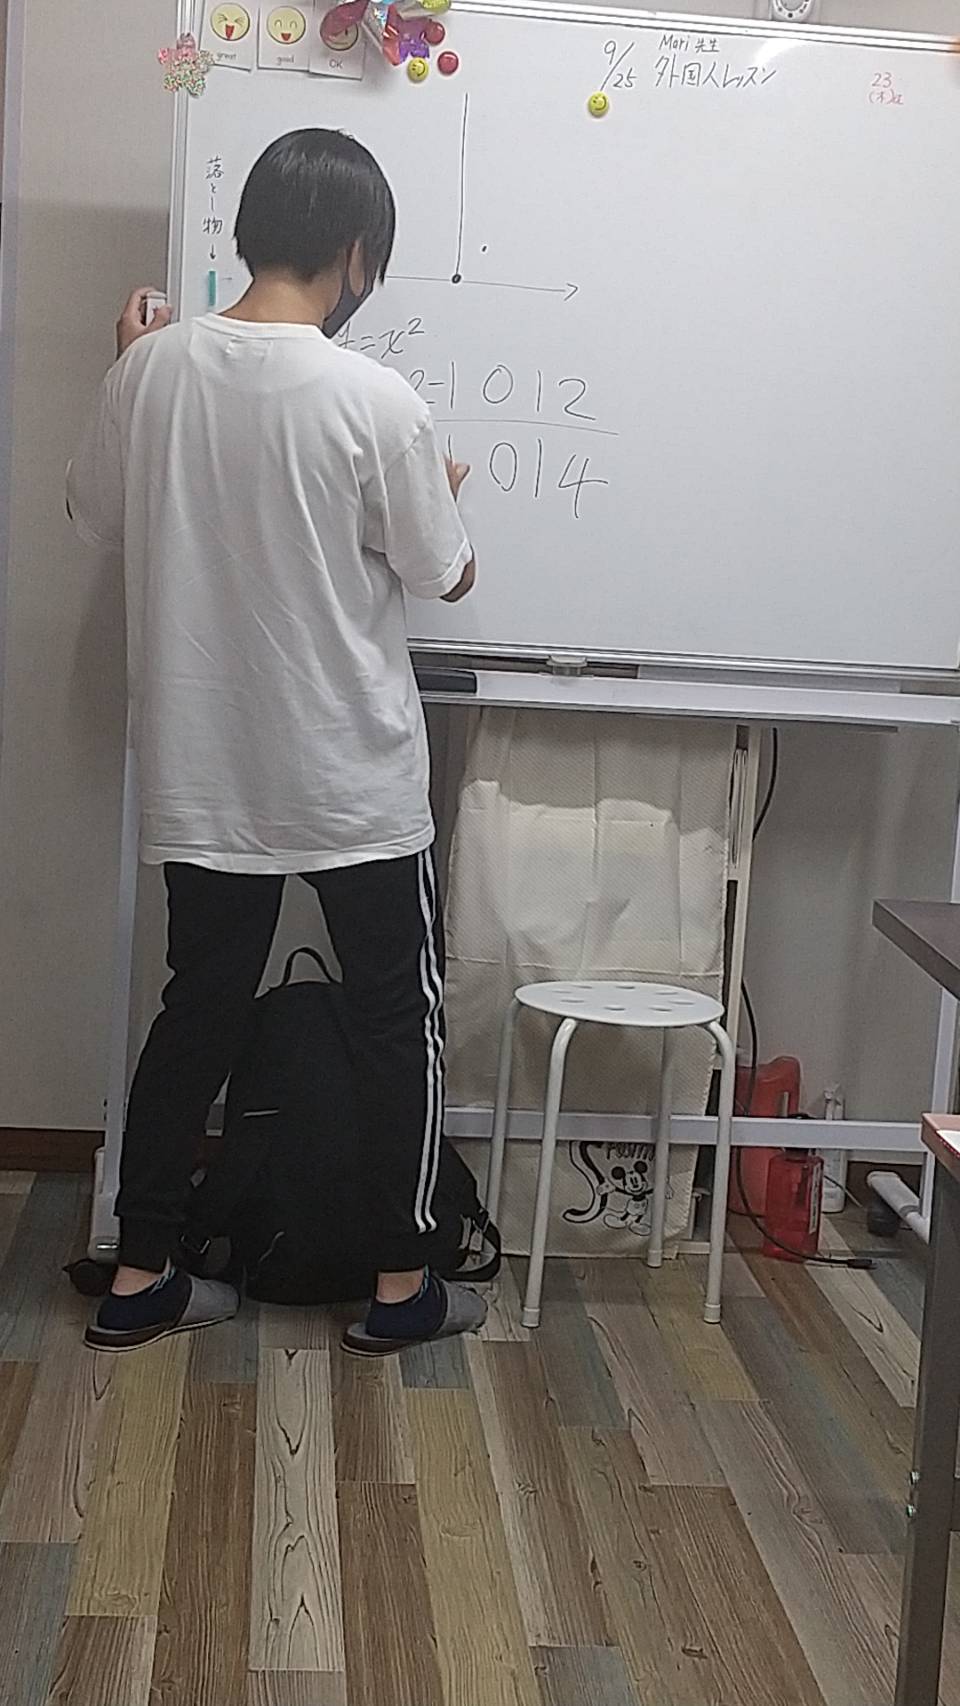 great
good
OK
9/25
Mori 先生
外国人レッスン
23
(木)
落とし物↓
=x²
2 -1 0 1 2
1 0 1 4